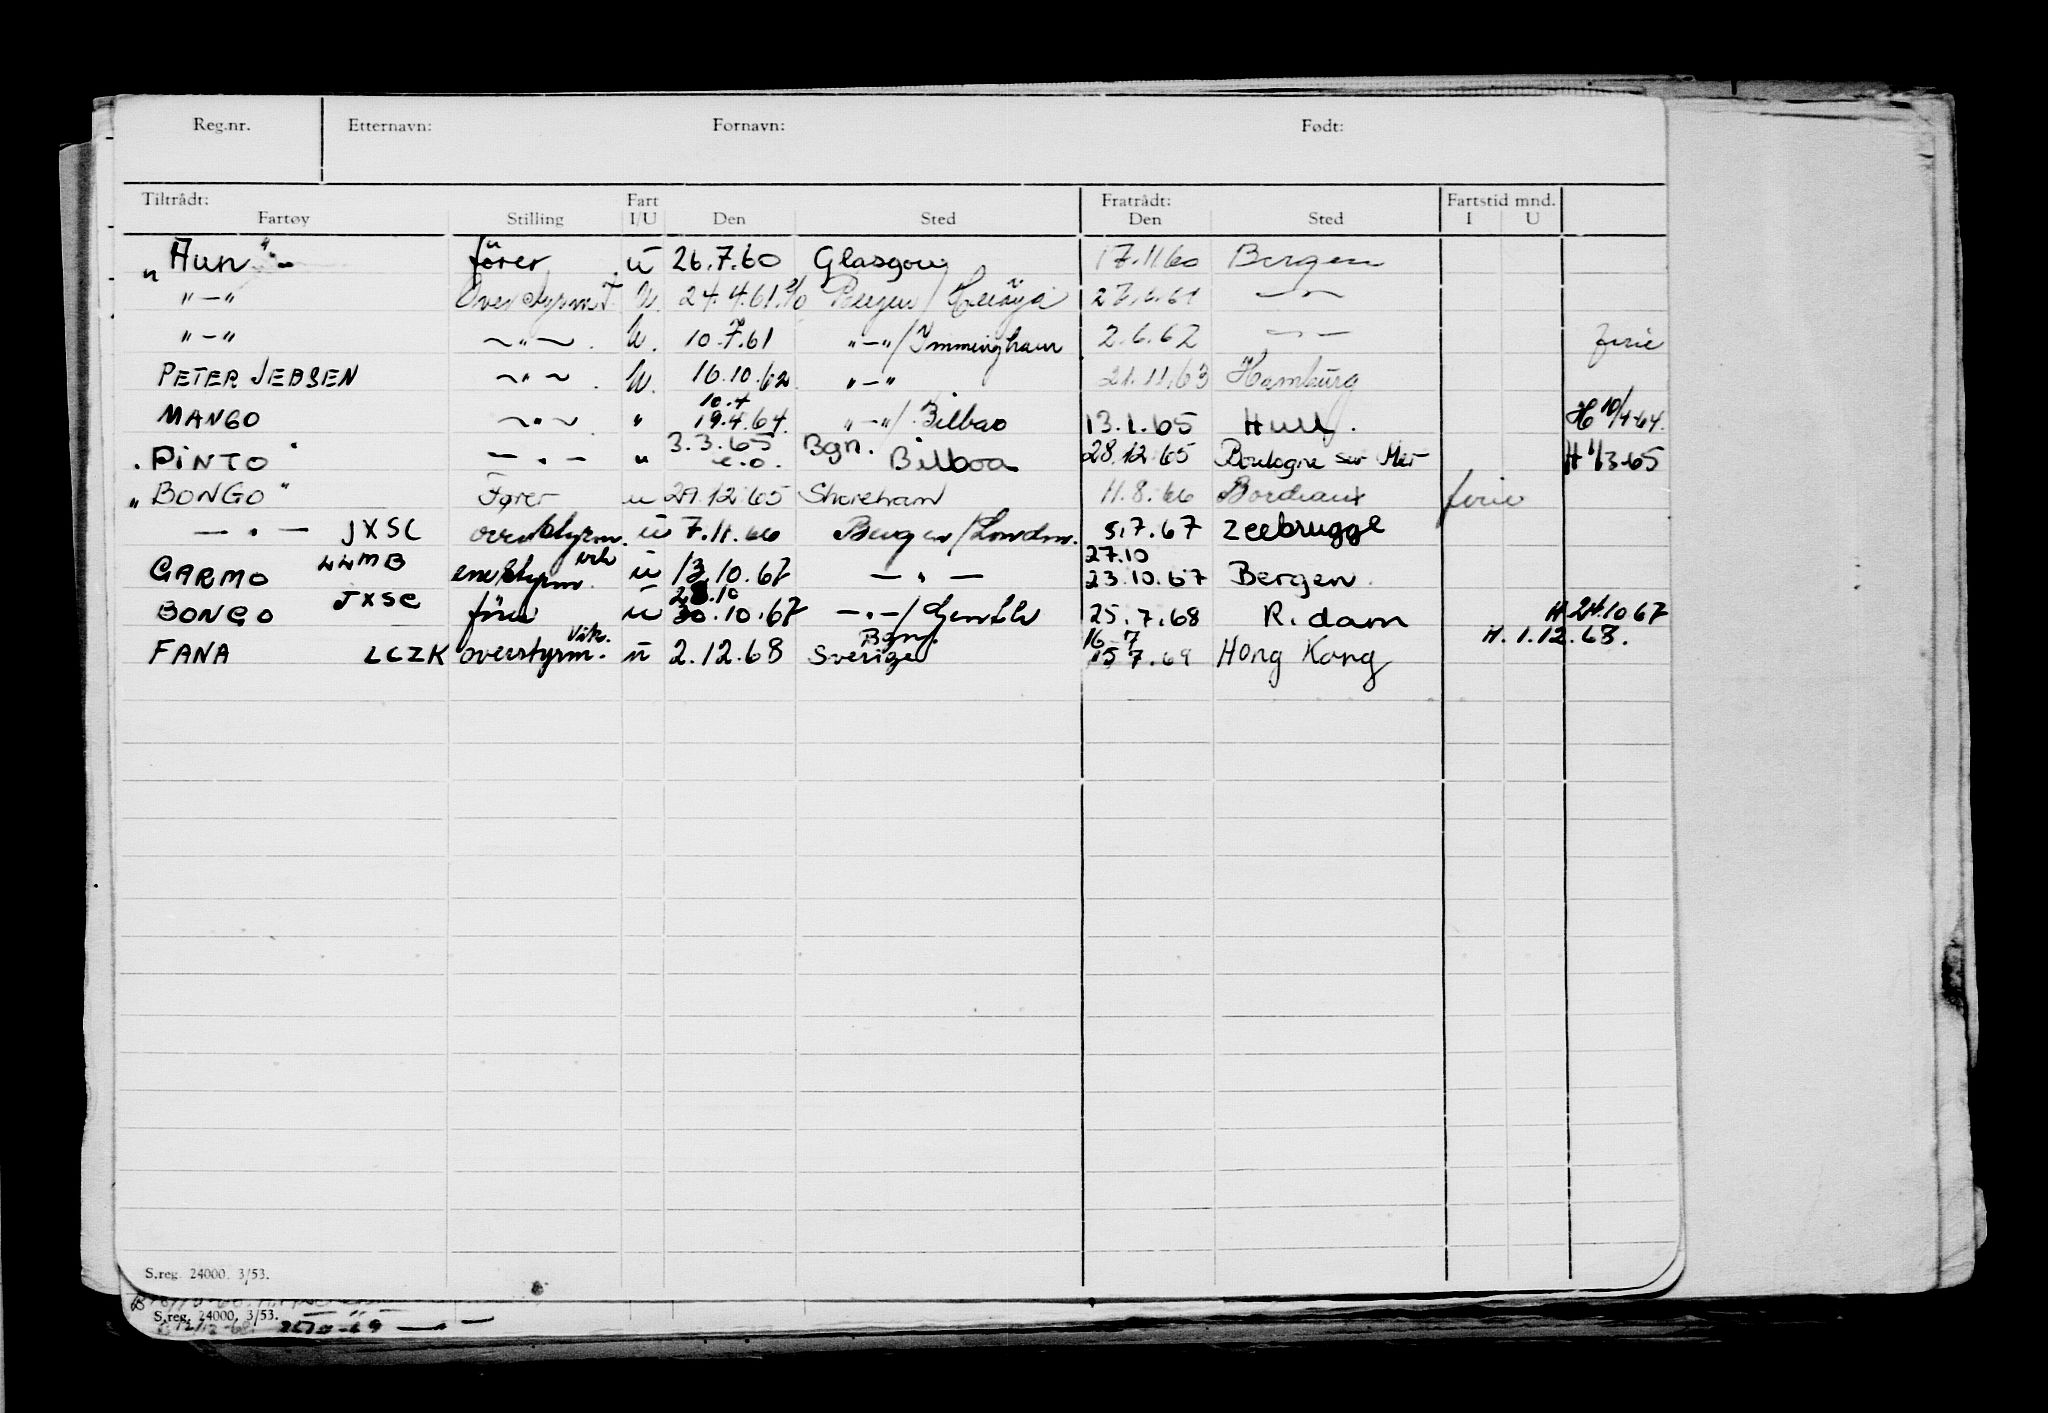 Reg.nr. Etternavn: Fornavn: Født:
Tiltrådt: Fart Fratrådt: Fartstid mnd.
Fartøy Stilling I/U Den Sted Den Sted I U
"Hun" fører u 26.7.60 Glasgow 17.11.60 Bergen
"—" Overstyrm. U. 24.4.61 Bergen/Herøya
"—" ~"~ U. 10.7.61 "—"/Immingham 2.6.62 — — ferie
PETER JEBSEN ~"~ U. 16.10.62 "—" 21.11.63 Hamburg
MANGO ~"~ " 10.4 19.4.64. "—"/Bilbao 13.1.65 Hull. H 10/4-64.
"PINTO" — " — " 3.3.65 Bgn. Bilboa 28.12.65 Boulogne sur Mer H 1/3-65
"BONGO" Fører u 29.12.65 Shoreham 11.8.66 Bordeaux ferie
— " — JXSC overstyrm. u 7.11.66 Bergen/London. 5.7.67 Zeebrugge
GARMO LLMB styrm. u 13.10.67 — " — 27.10 23.10.67 Bergen.
BONGO JXSC fører u 28.10 30.10.67 — " —/ 25.7.68 R.dam H. 24.10 67
FANA LCZK overstyrm. vik. u 2.12.68 Bgn/ Sverige 16-7 15 7.69 Hong Kong H. 1.12.68.
S.reg. 24000. 3/53.
S.reg. 24000. 3/53.